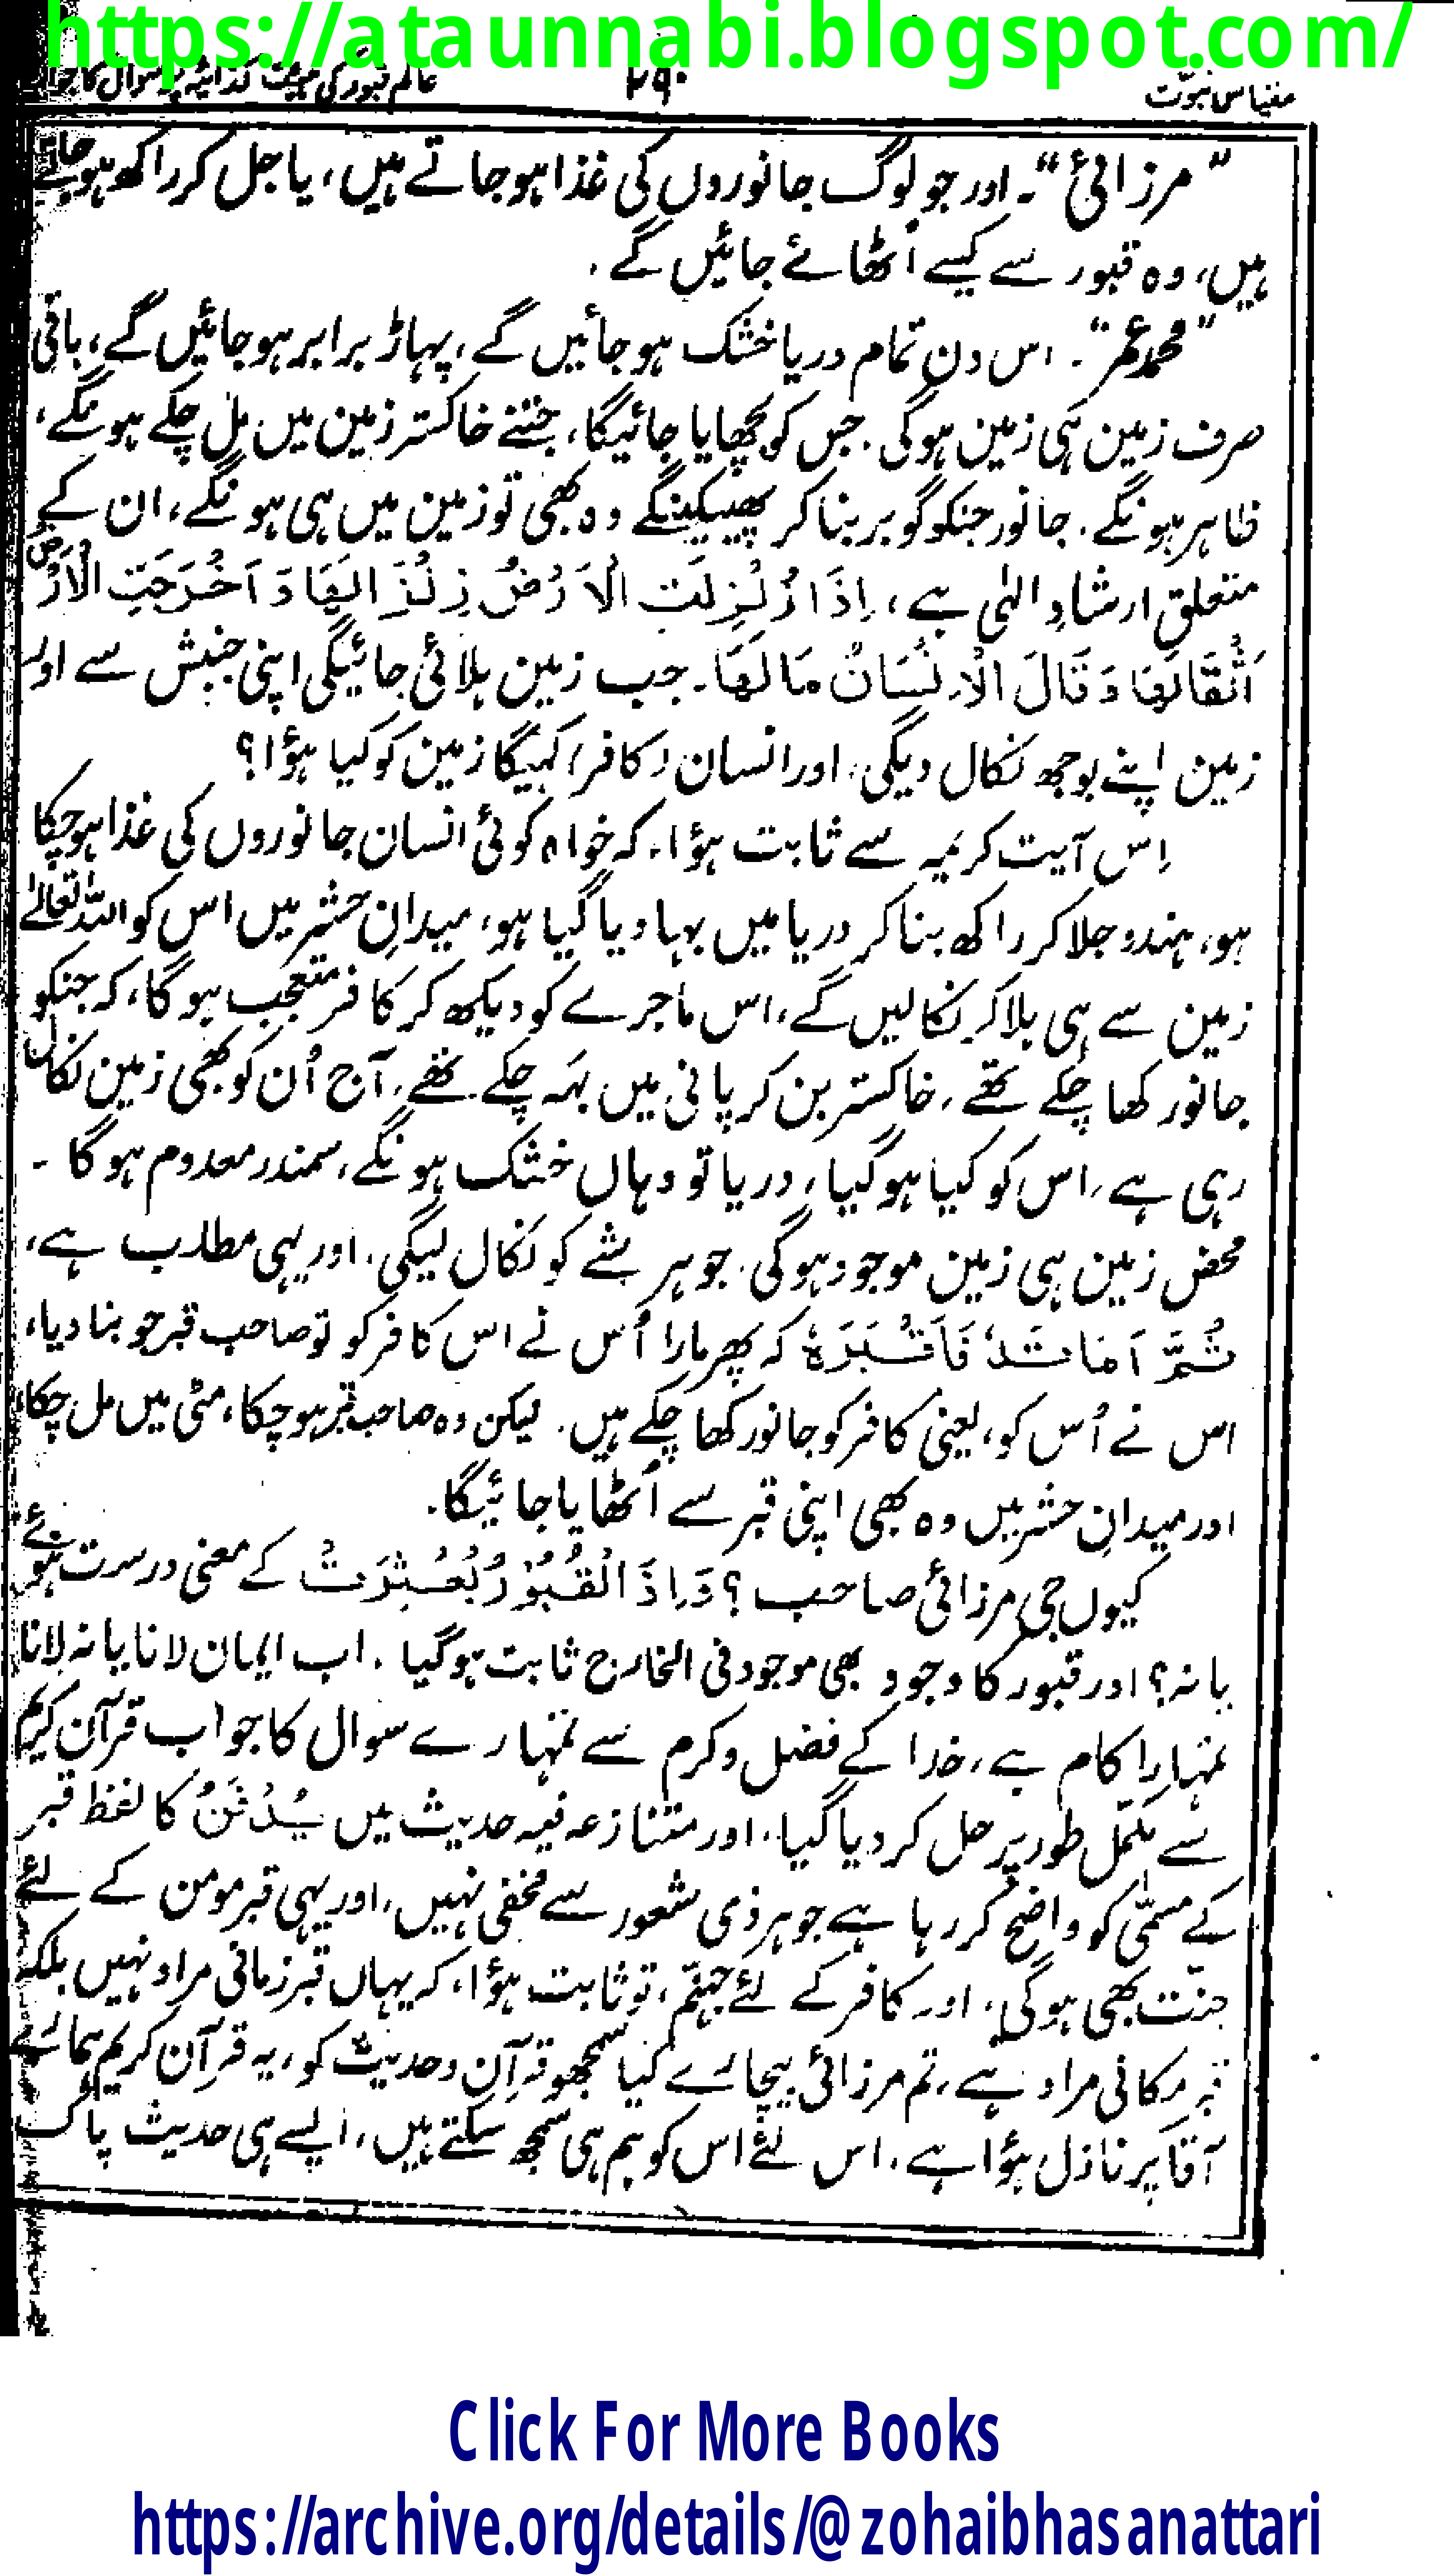 https://ataunnabi.blogspot.com/
مقیاس نبوّت ۲۹۰ عالم قبور کی ہیئت کذائیہ پر سوال کا جواب
”مرزائی“۔ اور جو لوگ جانوروں کی غذا ہو جاتے ہیں، یا جل کر راکھ ہو جاتے
ہیں، وہ قبور سے کیسے اُٹھائے جائیں گے.
”محمد عمر“۔ اس دن تمام دریا خشک ہو جائیں گے، پہاڑ برابر ہو جائیں گے، باقی
صرف زمین ہی زمین ہو گی. جس کو بچھایا جائیگا، جتنے خاکستر زمین میں مل چکے ہونگے،
ظاہر ہونگے. جانور جنکو گوبر بنا کر پھینکینگے وہ بھی تو زمین میں ہی ہونگے، ان کے
متعلق ارشادِ الٰہی ہے، اِذَا زُلْزِلَتِ الْاَرْضُ زِلْزَالَهَا وَاَخْرَجَتِ الْاَرْضُ
اَثْقَالَهَا وَقَالَ الْاِنْسَانُ مَالَهَا۔ جب زمین ہلائی جائیگی اپنی جنبش سے اور
زمین اپنے بوجھ نکال دیگی، اور انسان (کافر) کہیگا زمین کو کیا ہؤا؟
اِس آیت کریمہ سے ثابت ہؤا۔ کہ خواہ کوئی انسان جانوروں کی غذا ہو چکا
ہو، ہندو جلا کر راکھ بنا کر دریا میں بہا دیا گیا ہو، میدانِ حشر میں اس کو اللہ تعالےٰ
زمین سے ہی ہلا کر نکالیں گے، اس ماجرے کو دیکھ کر کافر متعجب ہو گا، کہ جنکو
جانور کھا چکے تھے، خاکستر بن کر پانی میں بہہ چکے تھے، آج اُن کو بھی زمین نکال
رہی ہے، اس کو کیا ہو گیا، دریا تو وہاں خشک ہونگے، سمندر معدوم ہو گا ۔
محض زمین ہی زمین موجود ہو گی. جو ہر شے کو نکال لیگی. اور یہی مطلب ہے،
ثُمَّ اَمَاتَهٗ فَاَقْبَرَهٗ کہ پھر مارا اُس نے اس کافر کو تو صاحب قبر جو بنا دیا،
اس نے اُس کو، یعنی کافر کو جانور کھا چکے ہیں. لیکن وہ صاحب قبر ہو چکا، مٹی میں مل چکا،
اور میدانِ حشر میں وہ بھی اپنی قبر سے اُٹھایا جائیگا.
کیوں جی مرزائی صاحب؟ وَاِذَ الْقُبُوْرُ بُعْثِرَتْ کے معنی درست ہوئے
یا نہ؟ اور قبور کا وجود بھی موجود فی الخارج ثابت ہو گیا. اب ایمان لانا یا نہ لانا
تمہارا کام ہے، خدا کے فضل و کرم سے تمہارے سوال کا جواب قرآن کریم
سے مکمّل طور پر حل کر دیا گیا، اور متنازعہ فیہ حدیث میں یُدْفَنُ کا لفظ قبر
کے مسمّٰی کو واضح کر رہا ہے جو ہر ذی شعور سے مخفی نہیں، اور یہی قبر مومن کے لئے
جنّت بھی ہو گی، اور کافر کے لئے جہنّم، تو ثابت ہؤا، کہ یہاں قبر زمانی مراد نہیں بلکہ
قبر مکانی مراد ہے، تم مرزائی بیچارے کیا سمجھو قرآن و حدیث کو، یہ قرآن کریم ہمارے
آقا پر نازل ہؤا ہے، اس لئے اس کو ہم ہی سمجھ سکتے ہیں، ایسے ہی حدیث پاک
Click For More Books
https://archive.org/details/@zohaibhasanattari